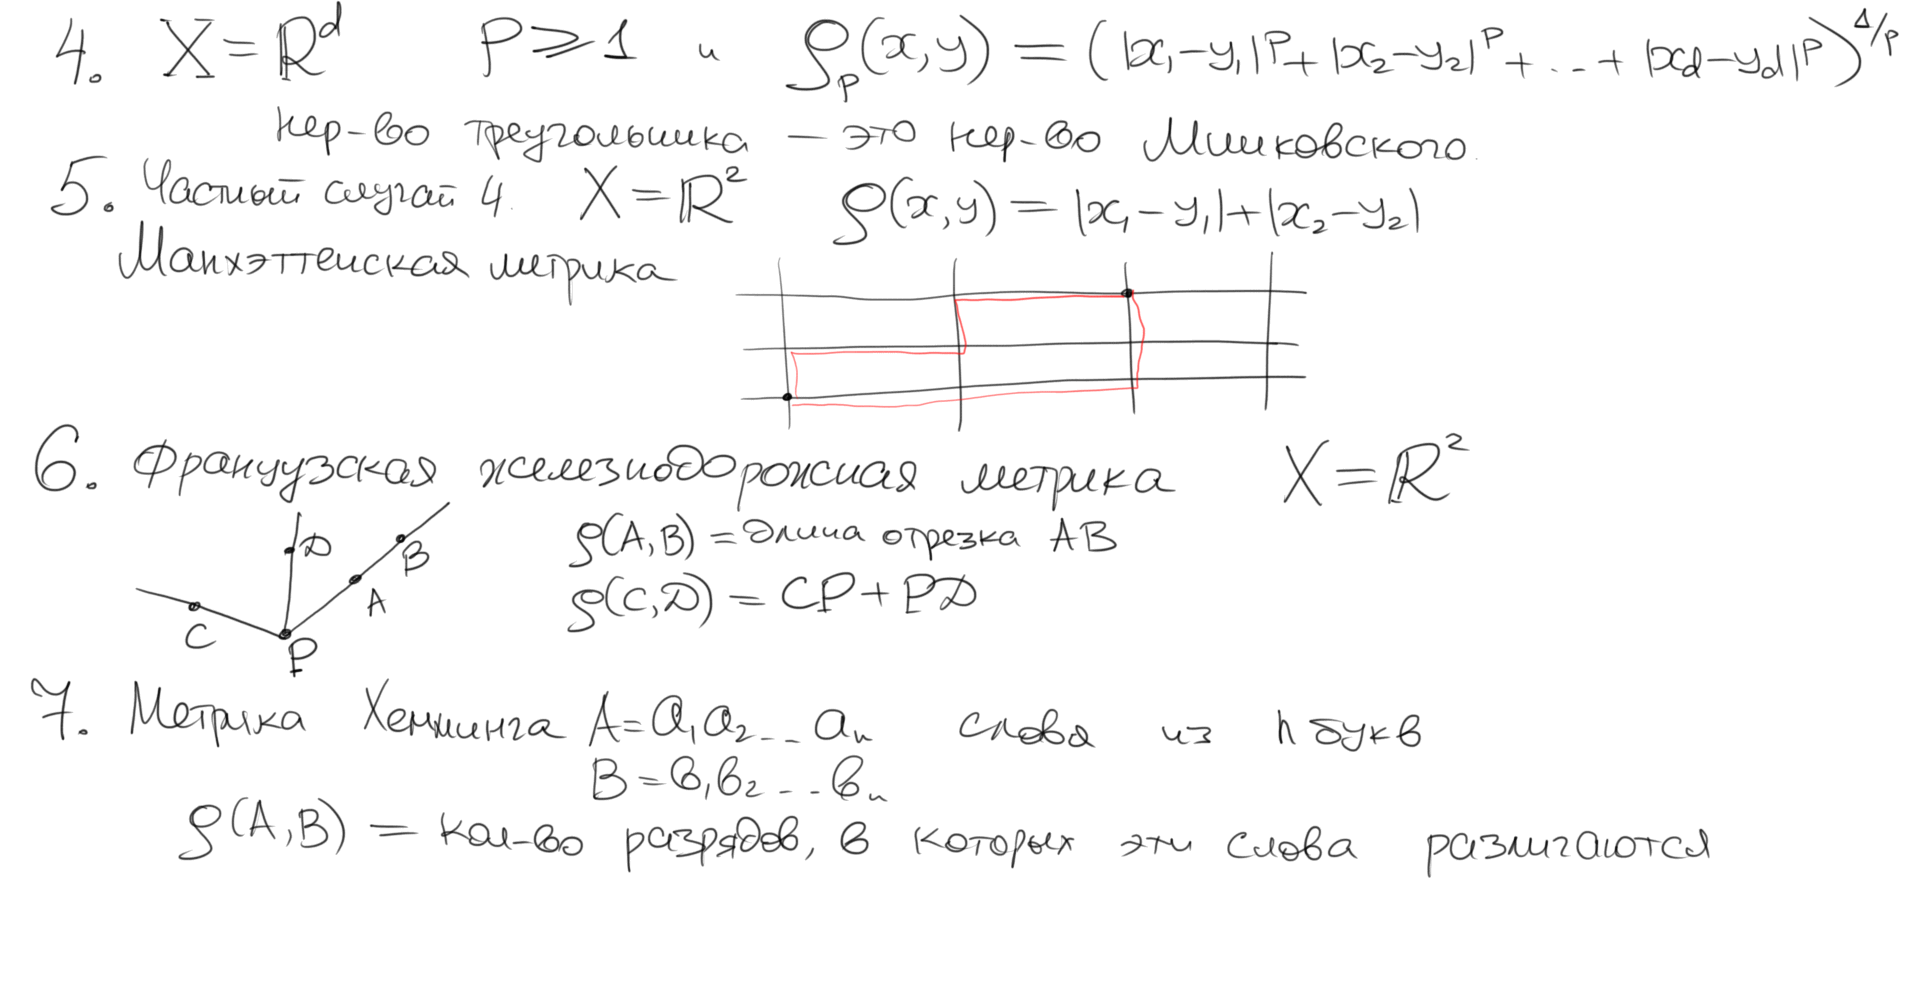 4. X = ℝ^d P ⩾ 1 и ρ_p(x,y) = (|x₁-y₁|^p + |x₂-y₂|^p + ... + |x_d-y_d|^p)^{1/p}
нер-во треугольника — это нер-во Минковского.
5. Частный случай 4. X = ℝ² ρ(x,y) = |x₁-y₁|+|x₂-y₂|
Манхэттенская метрика
6. Французская железнодорожная метрика X = ℝ²
ρ(A,B) = длина отрезка AB
ρ(C,D) = CP + PD
D
B
A
C
P
7. Метрика Хемминга A = a₁a₂...a_n слова из n букв
B = b₁b₂...b_n
ρ(A,B) = кол-во разрядов, в которых эти слова различаются